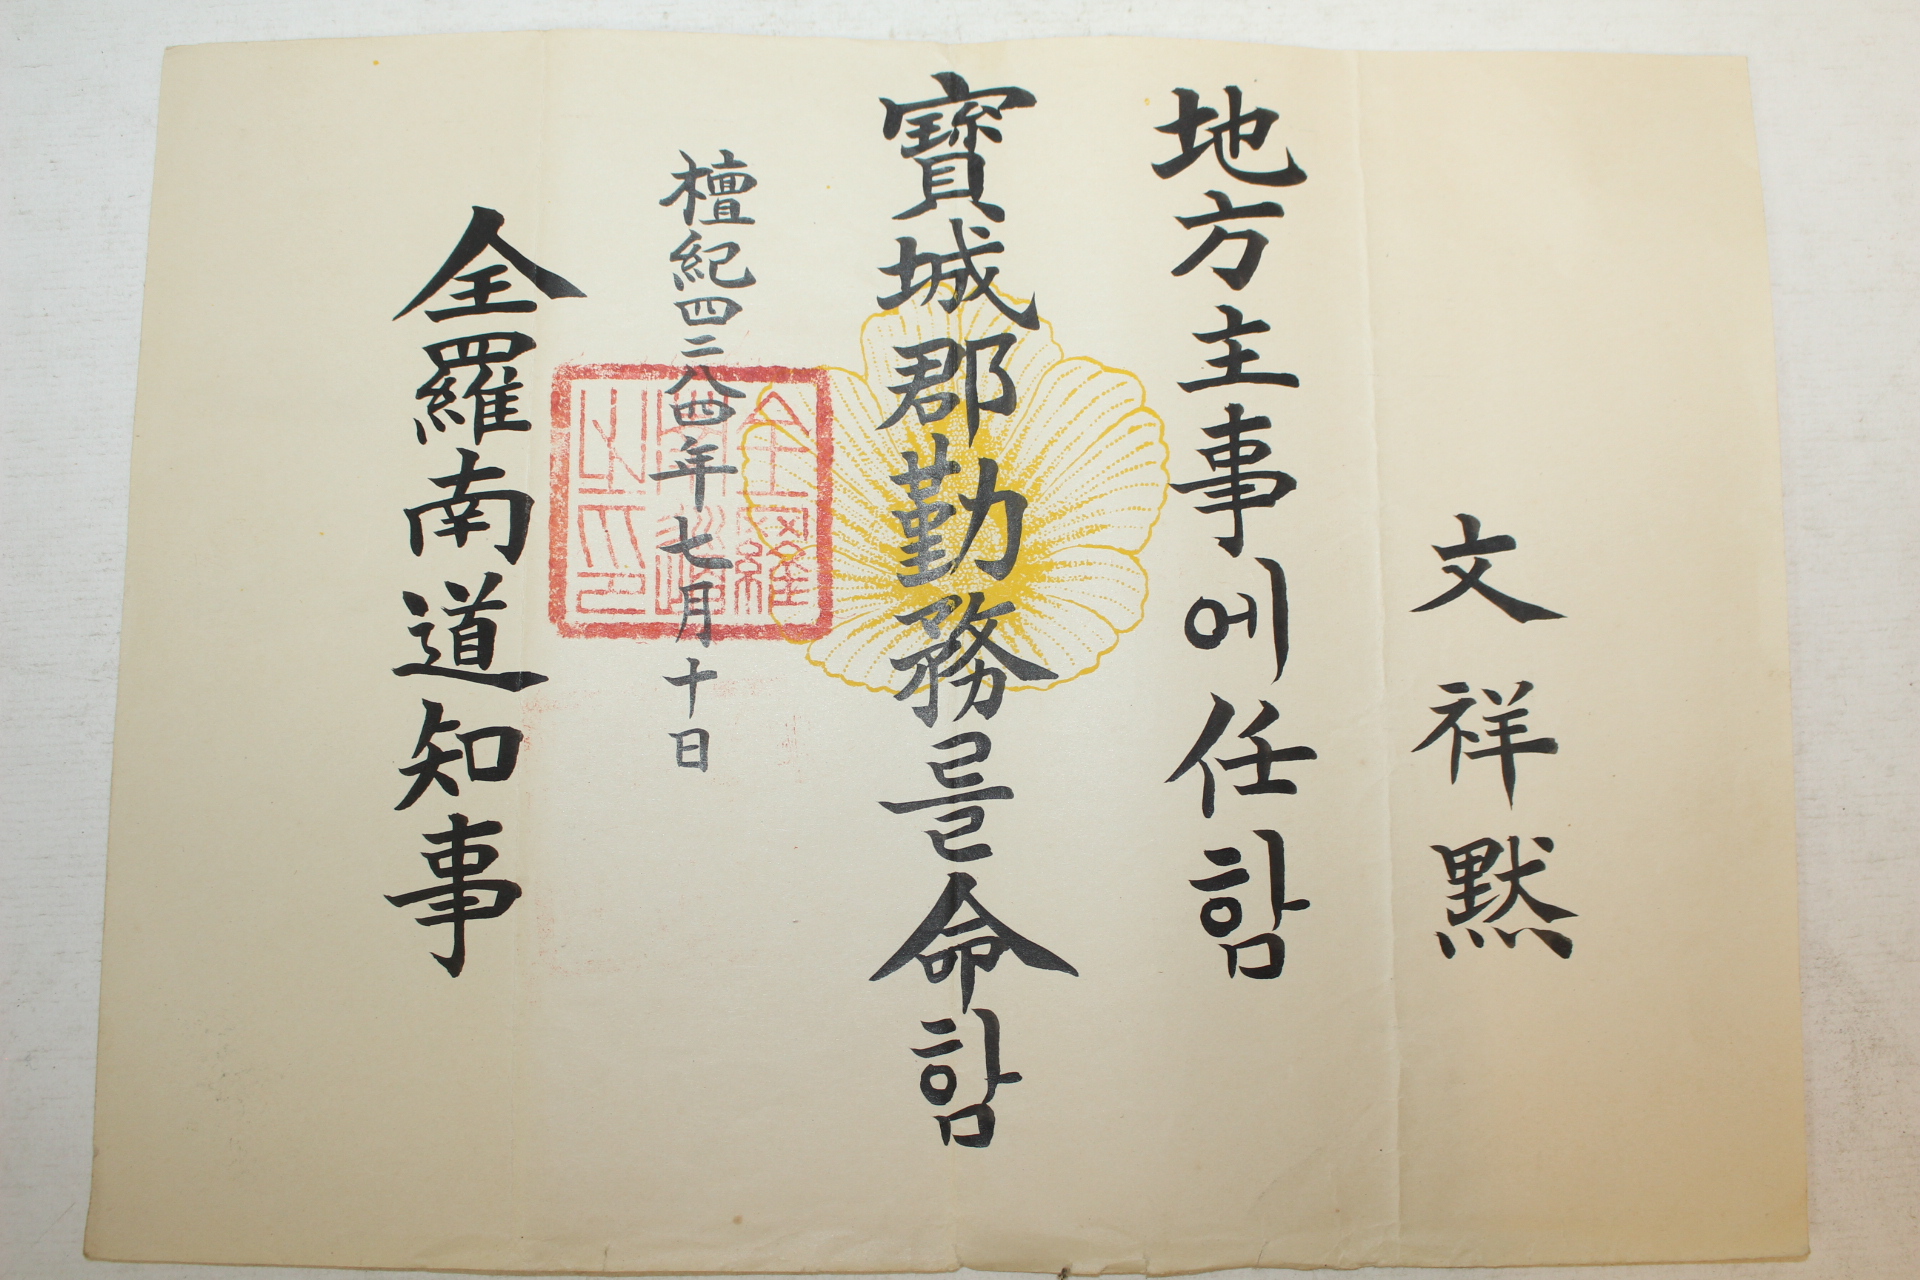 文祥默
地方主事에任함
寶城郡勤務를命함
檀紀四二八四年七月十日
全羅南道知事
全羅南道知事之印